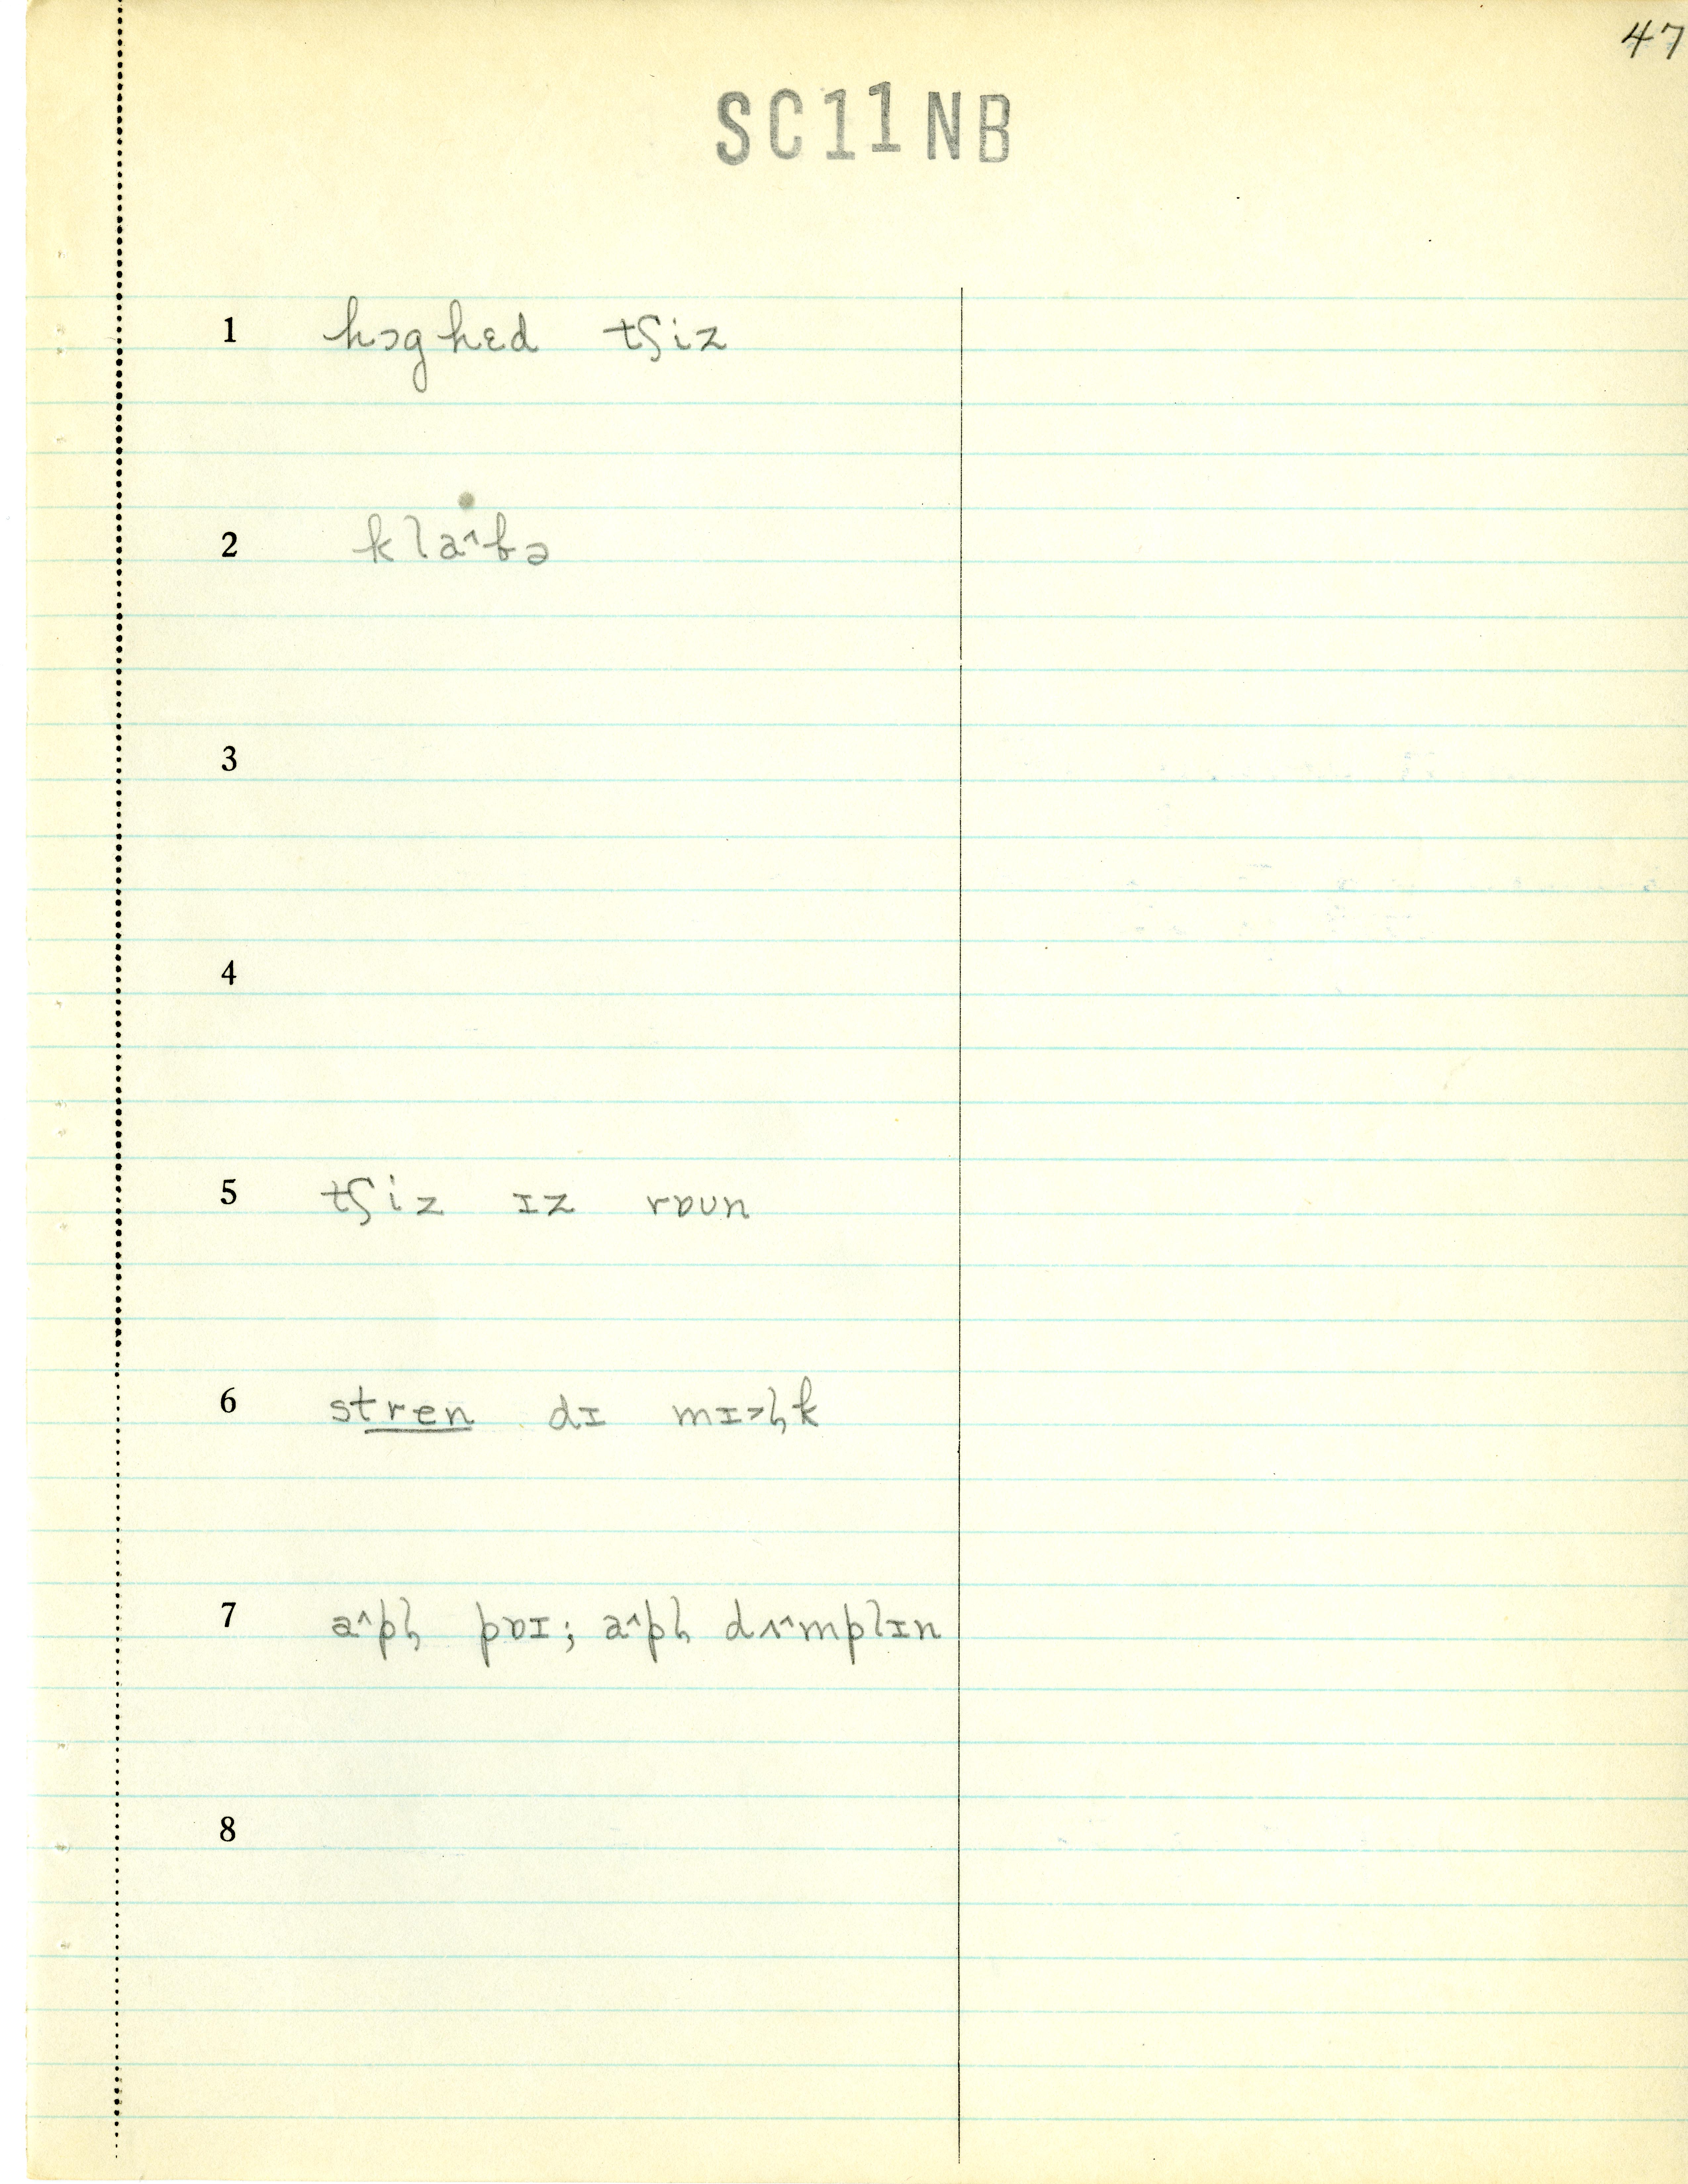 47
SC11NB
1 hɔghɛd tʃiz
2 klaˆbə
3
4
5 tʃiz ɪz rɒun
6 stren dɪ mɪ˃l̩k
7 aˆpl̩ pɒɪ; aˆpl̩ dʌˆmplɪn
8